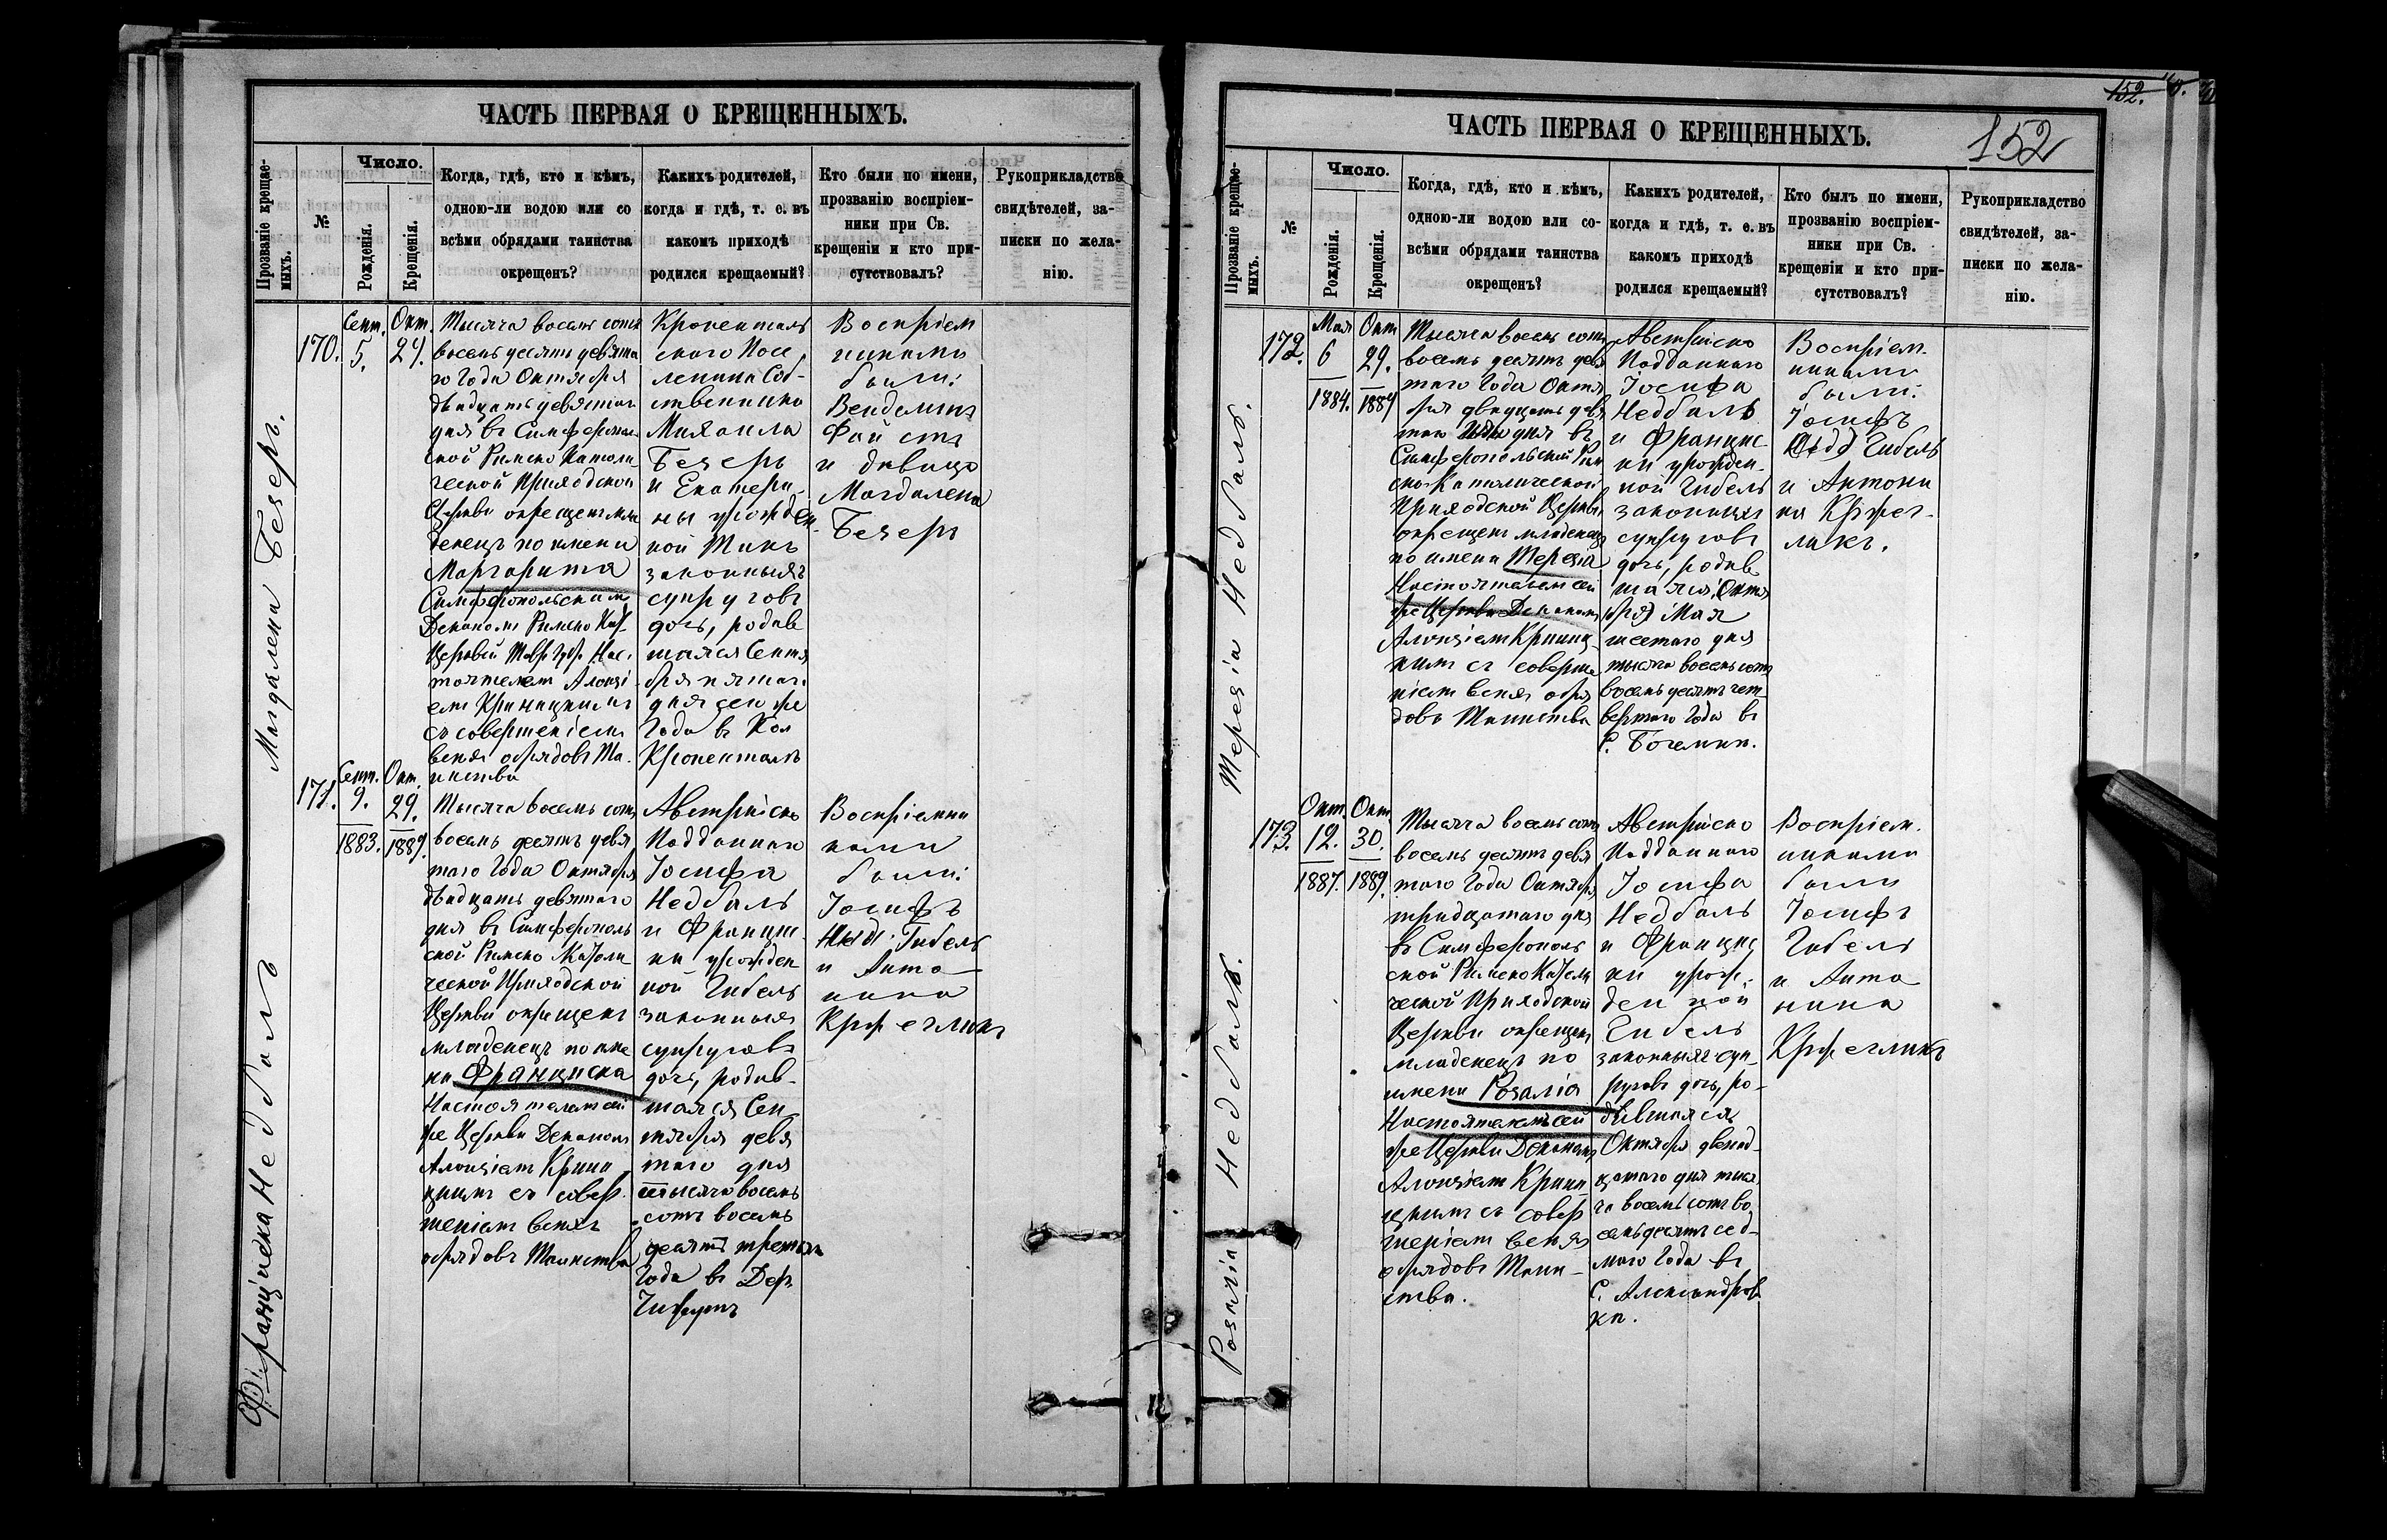 ЧАСТЬ ПЕРВАЯ О КРЕЩЕННЫХЪ.
Прозваніе крещае-
мыхъ.
№
Число.
Рожденія.
Крещенія.
Когда, гдѣ, кто и кѣмъ,
одною-ли водою или со
всѣми обрядами таинства
окрещенъ?
Какихъ родителей,
когда и гдѣ, т. е. въ
какомъ приходѣ
родился крещаемый?
Кто были по имени,
прозванію воспріем-
ники при Св.
крещеніи и кто при-
сутствовалъ?
Рукоприкладство
свидѣтелей, за-
писки по жела-
нію.
Магдалена Бечеръ.
170.
Сент.
5.
Окт.
29.
Тысяча восемь сотъ
восемь десятъ девята
го Года Октября
двадцать девятаго
дня въ Симферополь
ской Римско Католи
ческой Приходской
Церкви окрещенъ мла
денецъ по имени
Маргарита
Симферопольскимъ
Деканомъ Римско Кат.
Церквей Тавр. Губ. Нас-
тоятелемъ Алоизі
емъ Криницкимъ
съ совершеніемъ
всѣхъ обрядовъ Та-
инства
Кроненталь
скаго Посе
лянина Соб-
ственника
Михаила
Бечеръ
и Екатери-
ны урожден
ной
законныхъ
супруговъ
дочь, родив
шаяся Сентя
бря пятаго
дня сего же
Года въ Кол
Кроненталь
Воспріем
никами
были:
Венделинъ
Фаустъ
и дѣвица
Магдалена
Бечеръ
Франціска Недбаль
171.
Сент.
9.
1883.
Окт.
29.
1889.
Тысяча восемь сотъ
восемь десятъ девя
таго Года Октября
двадцать девятаго
дня въ Симферополь
ской Римско Католи
ческой Приходской
Церкви окрещенъ
младенецъ по име
ни Франциска
Настоятелемъ сей
же Церкви Деканомъ
Алоизіемъ Криниц
кимъ съ совер
шеніемъ всѣхъ
обрядовъ Таинства
Австрійско
Подданнаго
Іосифа
Недбаль
и Францис
ки урожден
ной Гибель
законныхъ
супруговъ
дочь, родив-
шаяся Сен
тября девя
таго дня
тысяча восемь
сотъ восемь
десятъ третьяго
Года въ Дер.
Воспріемни
ками
были:
Іосифъ
Гибель
и Анто
нина
ЧАСТЬ ПЕРВАЯ О КРЕЩЕННЫХЪ.
152.
152
Прозваніе крещае-
мыхъ.
№
Число.
Рожденія.
Крещенія.
Когда, гдѣ, кто и кѣмъ,
одною-ли водою или со-
всѣми обрядами таинства
окрещенъ?
Какихъ родителей,
когда и гдѣ, т. е. въ
какомъ приходѣ
родился крещаемый?
Кто былъ по имени,
прозванію воспріем-
ники при Св.
крещеніи и кто при-
сутствовалъ?
Рукоприкладство
свидѣтелей, за-
писки по жела-
нію.
Терезія Недбаль.
172.
Мая
6
1884.
Окт
29.
1889
Тысяча восемь сотъ
восемь десятъ девя
таго Года Октя
бря двадцать девя
таго дня въ
Симферопольской Рим
ско-Католической
Приходской Церкви
окрещенъ младенецъ
по имени Терезіа
Настоятелемъ сей
же Церкви Деканомъ
Алоизіемъ Криниц
кимъ съ соверше
ніемъ всѣхъ обря
довъ Таинства
Австрійско
Подданнаго
Іосифа
Недбаль
и Францис
ки урожден
ной Гибель
законныхъ
супруговъ
дочь, родив
шаяся (Октя
бря) Мая
шестаго дня
тысяча восемь сотъ
восемь десятъ чет
вертаго Года въ
С. Богемки.
Воспріем-
никами
были:
Іосифъ
Гибель
и Антони
на
Розалія Недбаль.
173.
Окт.
12.
1887.
Окт.
30.
1889.
Тысяча восемь сотъ
восемь десятъ девя
таго Года Октября
тридцатаго дня
въ Симферополь
ской Римско Католи
ческой Приходской
Церкви окрещенъ
младенецъ по
имени Розалія
Настоятелемъ сей
же Церкви Деканомъ
Алоизіемъ Криниц
кимъ съ совер
шеніемъ всѣхъ
обрядовъ Таин-
ства.
Австрійско
Подданнаго
Іосифа
Недбаль
и Францис
ки урож-
ден ной
Гибель
законныхъ суп-
руговъ дочь, ро-
дившаяся
Октября двенад-
цатаго дня тыся
ча восемь сотъ во
семь десятъ сед-
маго Года въ
С. Александров
ка.
Воспріем-
никами
были
Іосифъ
Гибель
и Анто
нина